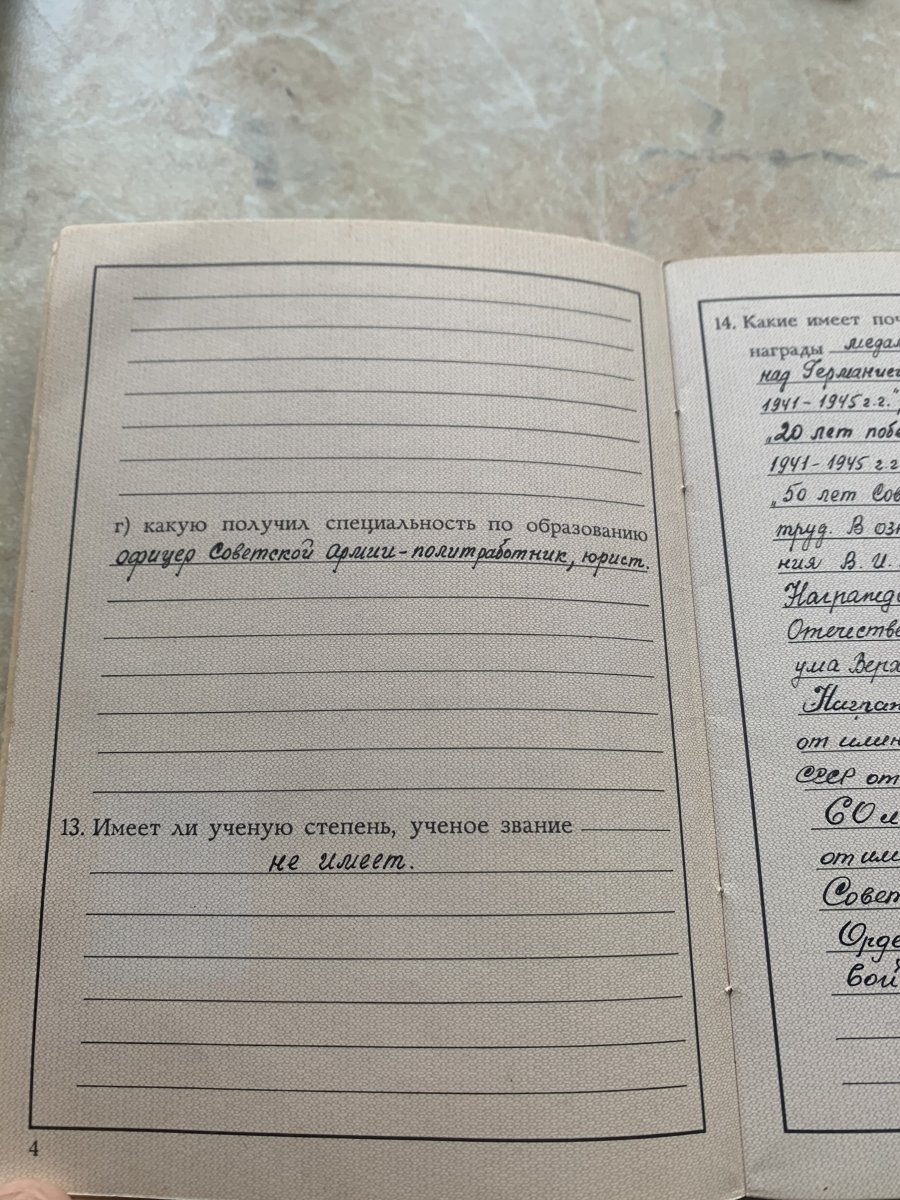 г) какую получил специальность по образованию
офицер Советской Армии-политработник, юрист.
13. Имеет ли ученую степень, ученое звание
не имеет.
4
14. Какие имеет поч
награды медал
над Германией
1941-1945 г.г.",
„20 лет побе
1941-1945 г.г
„50 лет Сов
труд. В озн
ния В. И.
Награжде
Отечестве
ума Верх
Награ
от имен
СССР от
60 л
от им
Совет
Орде
вой